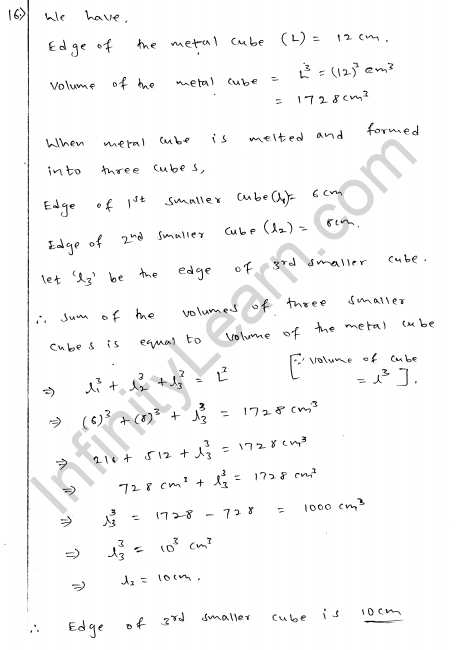 16) We have,
Edge of the metal cube (L) = 12 cm.
Volume of the metal cube = L³ = (12)³ cm³
= 1728 cm³
When metal cube is melted and formed
into three cubes,
Edge of 1st smaller cube (l₁) = 6 cm
Edge of 2nd smaller cube (l₂) = 8 cm.
let 'l₃' be the edge of 3rd smaller cube.
∴ Sum of the volumes of three smaller
cubes is equal to volume of the metal cube
⇒ l₁³ + l₂³ + l₃³ = L³ [∵ volume of cube
= l³].
⇒ (6)³ + (8)³ + l₃³ = 1728 cm³
⇒ 216 + 512 + l₃³ = 1728 cm³
⇒ 728 cm³ + l₃³ = 1728 cm³
⇒ l₃³ = 1728 - 728 = 1000 cm³
⇒ l₃³ = 10³ cm³
⇒ l₃ = 10 cm.
∴ Edge of 3rd smaller cube is 10 cm
InfinityLearn.com